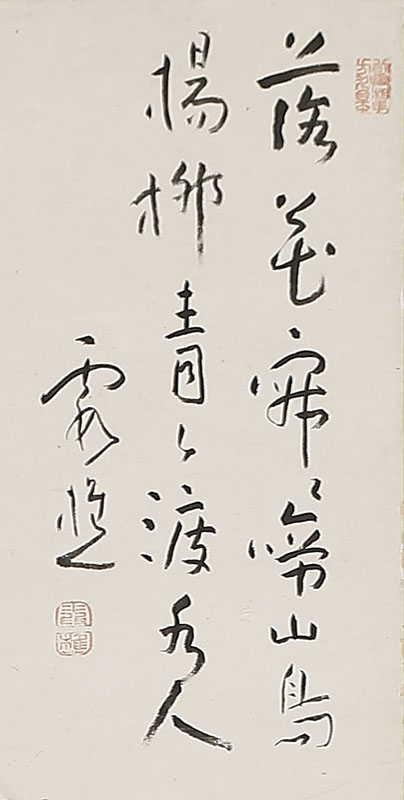 落花寂々啼山鳥
楊柳青々渡水人